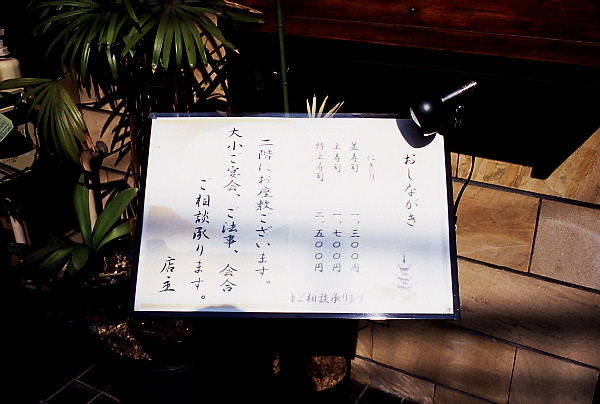 おしながき
にぎり
並寿司 一、三〇〇円
上寿司 一、七〇〇円
特上寿司 二、五〇〇円
ご相談承ります
二階にお座敷ございます。
大小ご宴会、ご法事、会合
ご相談承ります。
店主